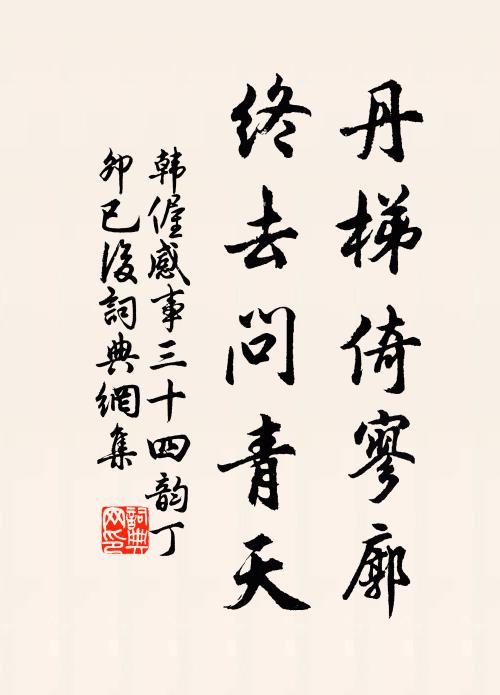 丹梯倚寥廓
终去问青天
韩偓感事三十四韵丁
卯已後詞典網集
詞典网印